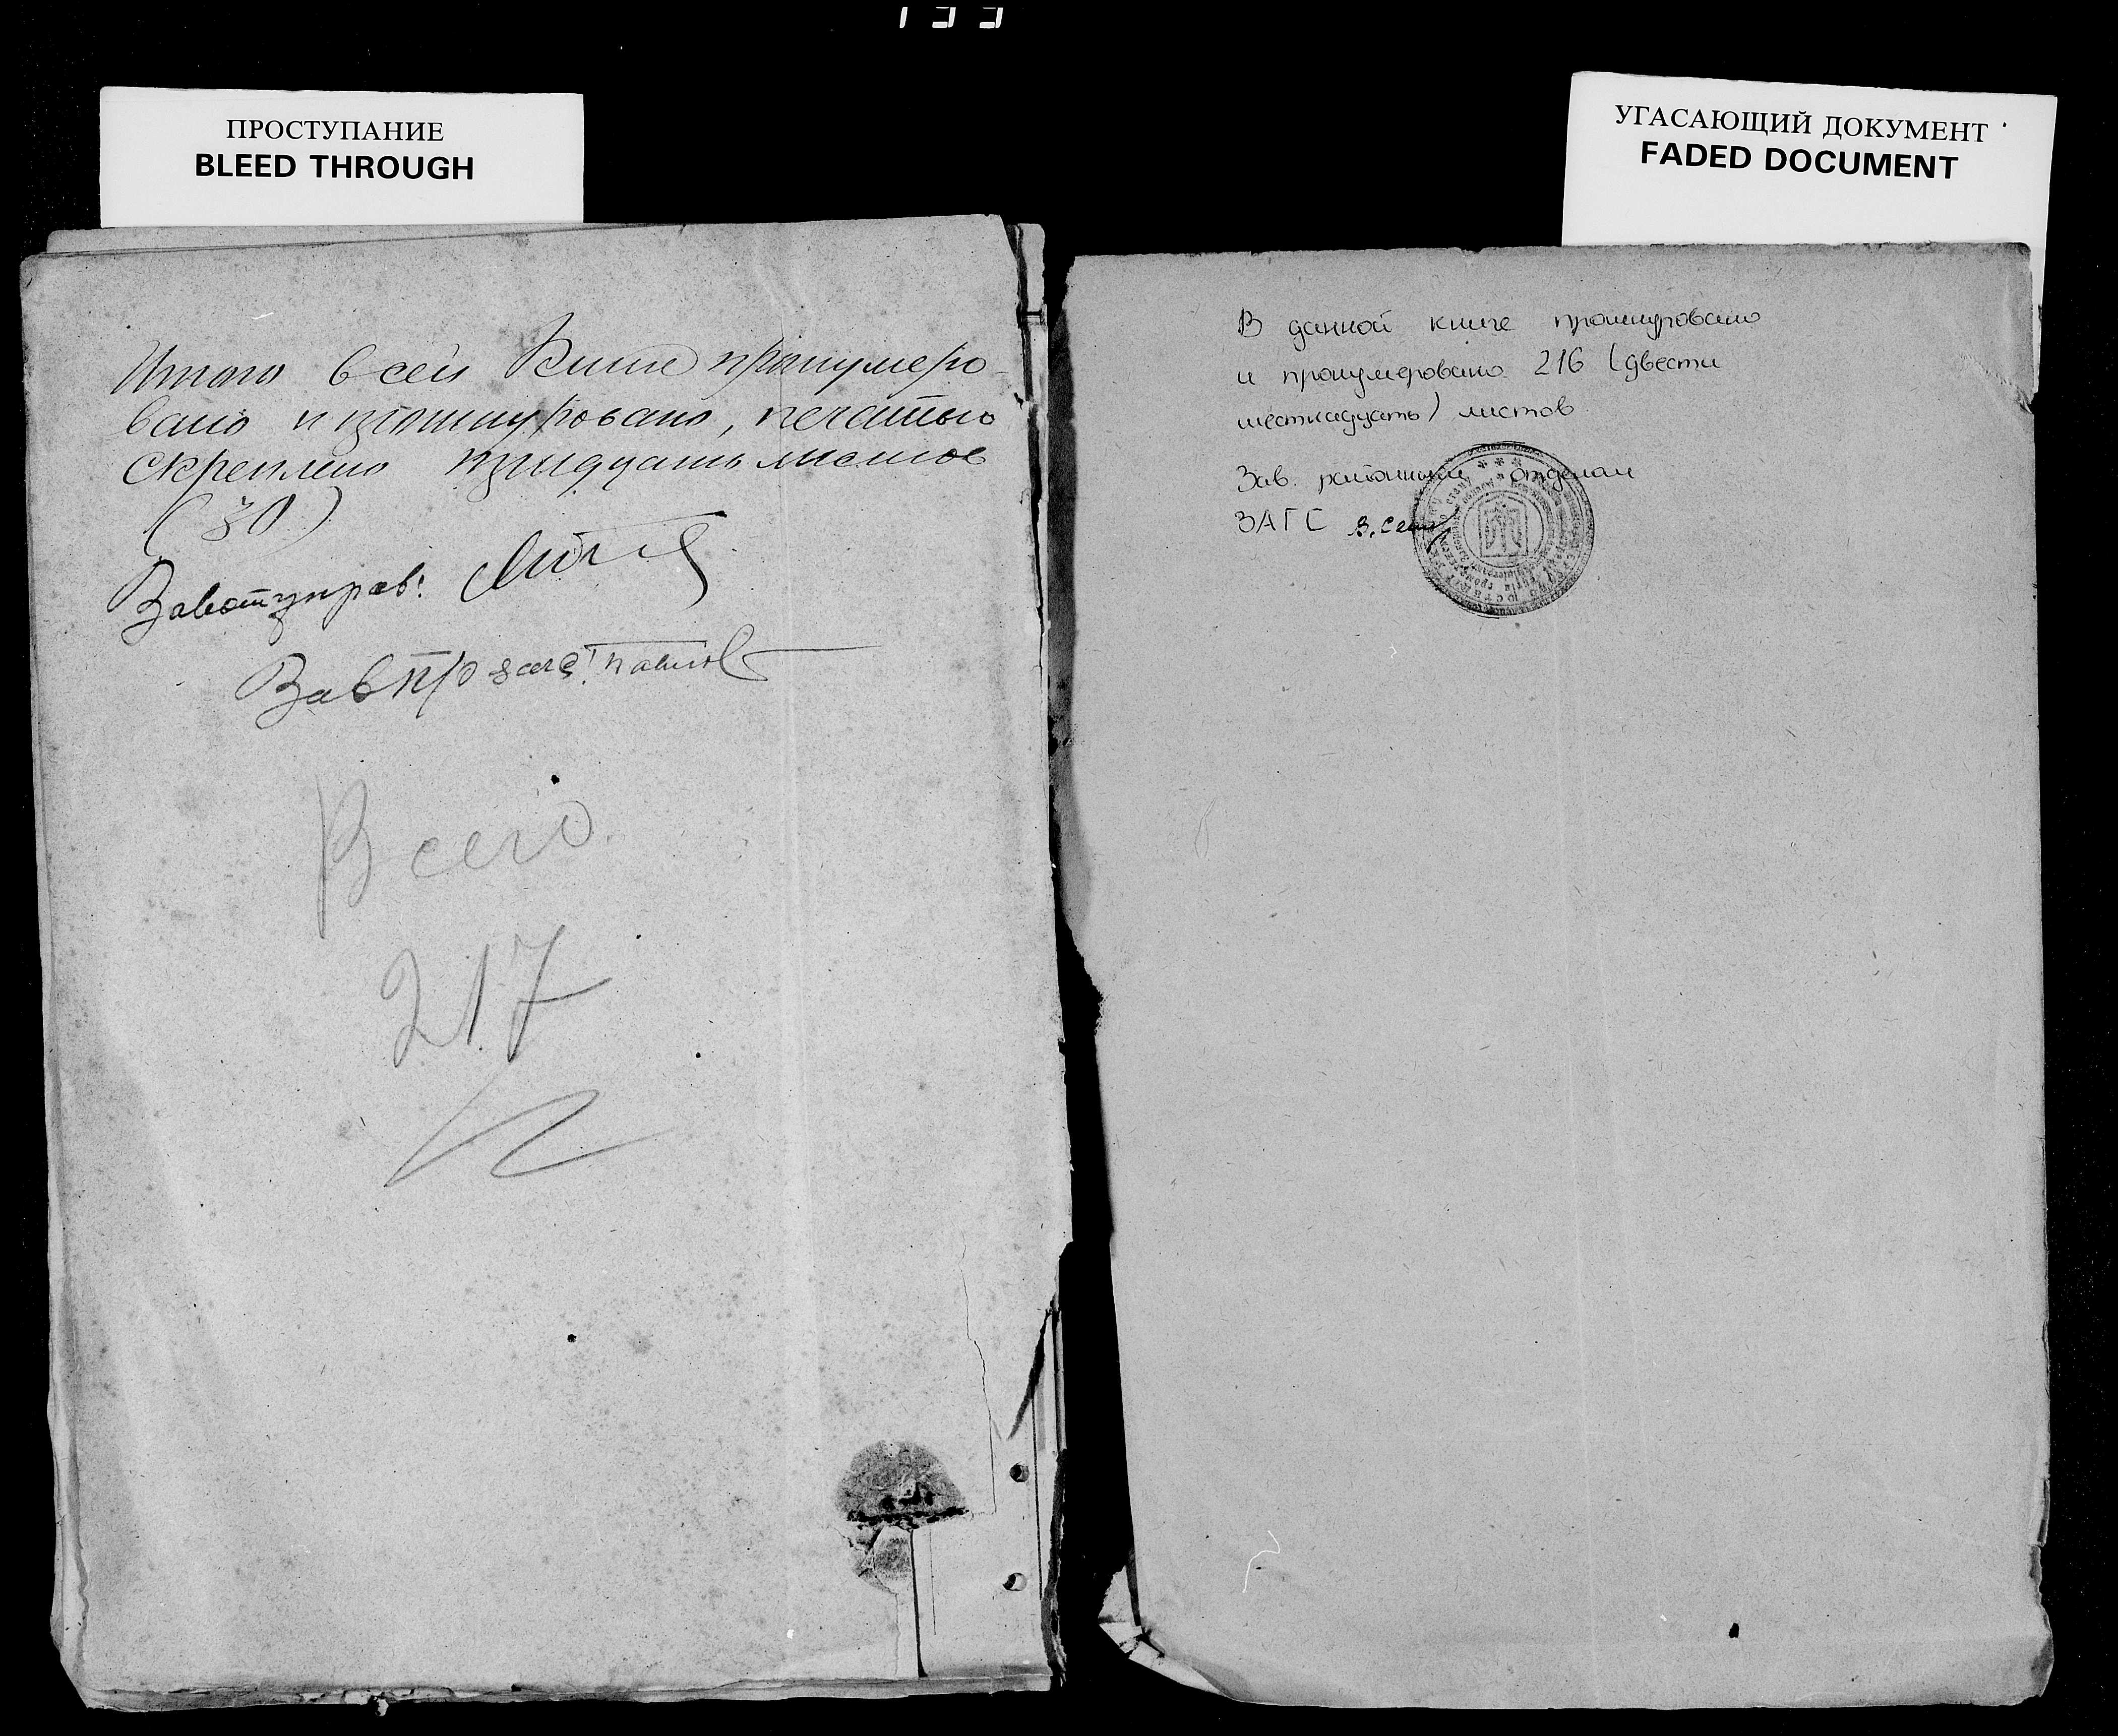 133
ПРОСТУПАНИЕ
BLEED THROUGH
УГАСАЮЩИЙ ДОКУМЕНТ
FADED DOCUMENT
Итого в сей Книге пронумеро-
вано и прошнуровано, печатью
скреплено тридцать листов
(30)
Завотуправ:
Зав п/о загс: Павлов
Всего
217
В данной книге прошнуровано
и пронумеровано 216 (двести
шестнадцать) листов
Зав. районным отделом
ЗАГС